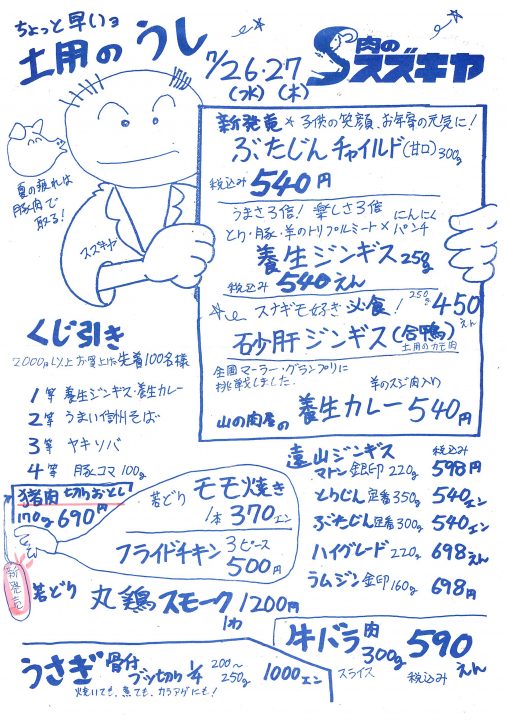 ちょっと早いョ
土用のうし
7/26・27
(水)(木)
肉の
スズキヤ
夏の疲れは
豚肉で
取る!
スズキヤ
新発売 * 子供の笑顔、お年寄の元気に!
ぶたじんチャイルド(甘口)300g
税込み 540円
うまさ3倍! 楽しさ3倍
とり・豚・羊のトリプルミート×にんにくパンチ
養生ジンギス250g
税込み 540えん
スナギモ好き 必食! 250g 450えん
砂肝ジンギス(合鴨)
土用のカモ肉
全国マーラー・グランプリに
挑戦しました
羊のスジ肉入り
山の肉屋の 養生カレー 540円
くじ引き
2000円以上お買上げ先着100名様
1等 養生ジンギス・養生カレー
2等 うまい信州そば
3等 ヤキソバ
4等 豚コマ100g
猪肉切りおとし
170g 690円
新発売
若どり モモ焼き
1本 370エン
フライドチキン 3ピース
500円
若どり 丸鶏スモーク 1200円
1羽
遠山ジンギス 税込み
マトン金印 220g 598円
とりじん定番350g 540エン
ぶたじん定番300g 540エン
ハイグレード220g 698えん
ラムジン金印160g 698円
うさぎ骨付
ブツ切り1/4 200〜250g 1000エン
焼いても、煮ても、カラアゲにも!
牛バラ肉 300g 590えん
スライス 税込み